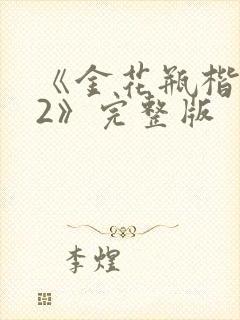 《金花瓶楷
2》完整版
李煌